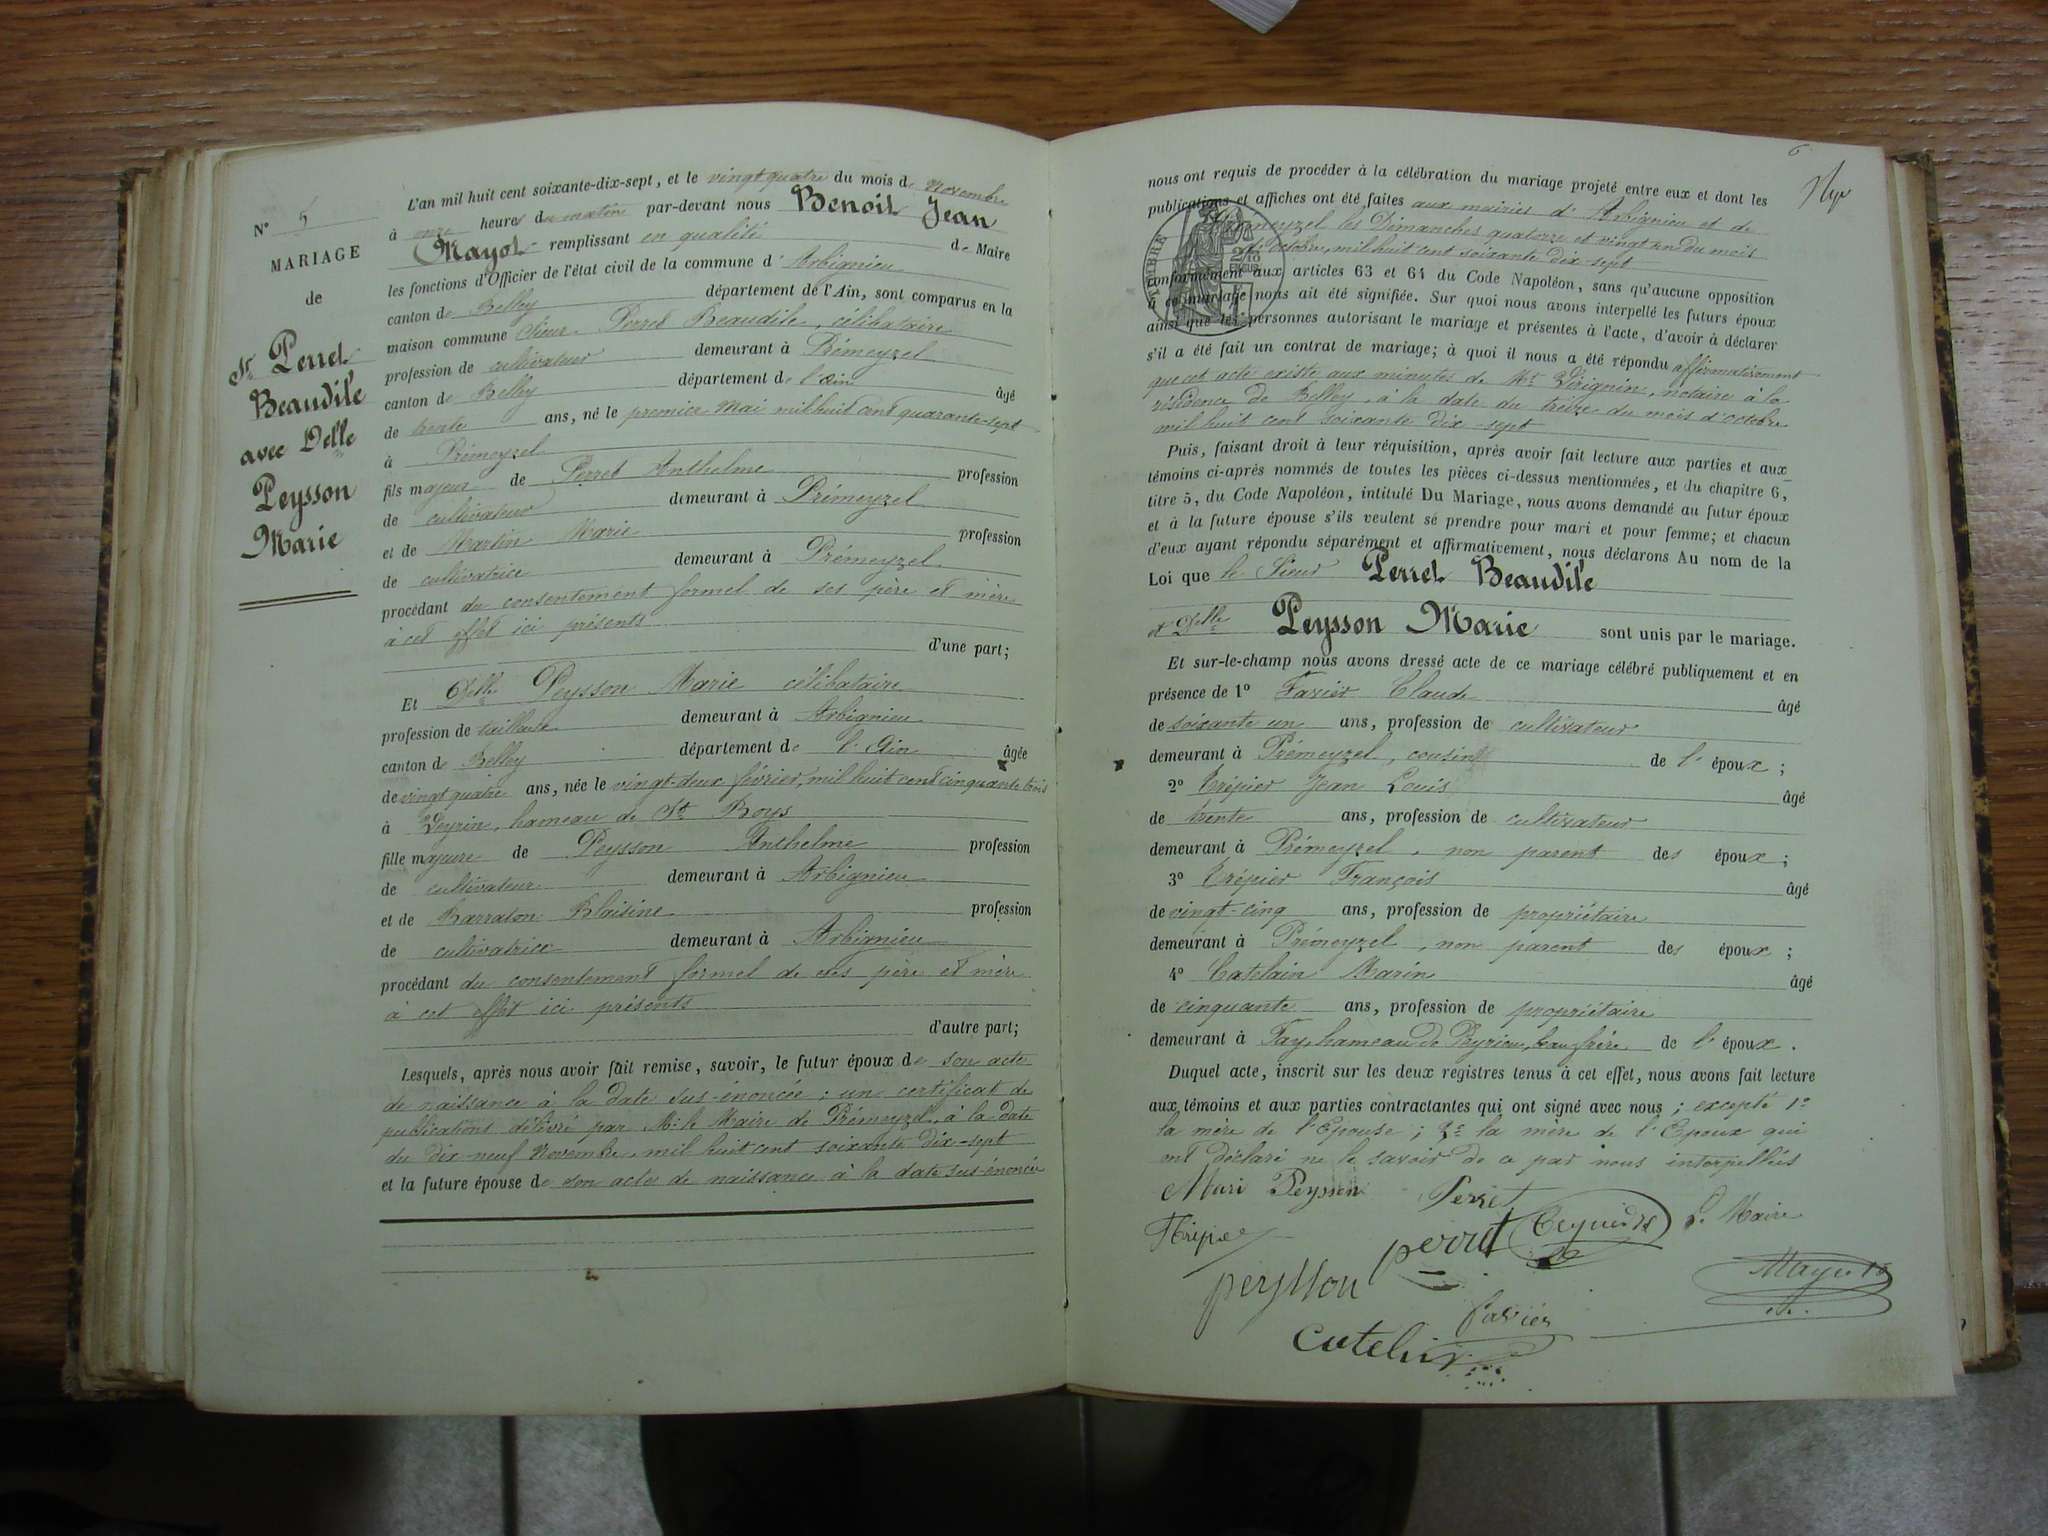 N° 5
MARIAGE
de
Sr. Perret
Beaudile
avec Delle
Peysson
Marie
L'an mil huit cent soixante-dix-sept, et le vingt quatre du mois de Novembre
à onze heures du matin par-devant nous Benoit Jean
Mayot remplissant en qualité de Maire
les fonctions d'Officier de l'état civil de la commune d'Arbignieu
canton de Belley département de l'Ain, sont comparus en la
maison commune Sieur Perret Beaudile, célibataire
profession de cultivateur demeurant à Prémeyzel
canton de Belley département de l'Ain âgé
de trente ans, né le premier Mai mil huit cent quarante-sept
à Prémeyzel
fils majeur de Perret Anthelme profession
de cultivateur demeurant à Prémeyzel
et de Martin Marie profession
de cultivatrice demeurant à Prémeyzel
procédant du consentement formel de ses père et mère
à cet effet ici présents
d'une part;
Et Delle Peysson Marie célibataire
profession de tailleuse demeurant à Arbignieu
canton de Belley département de l'Ain âgée
de vingt quatre ans, née le vingt-deux février, mil huit cent cinquante trois
à Veyrin, hameau de St Boys
fille majeure de Peysson Anthelme profession
de cultivateur demeurant à Arbignieu
et de Barraton Blaisine profession
de cultivatrice demeurant à Arbignieu
procédant du consentement formel de ses père et mère
à cet effet ici présents
d'autre part;
Lesquels, après nous avoir fait remise, savoir, le futur époux de son acte
de naissance à la date sus-énoncée; un certificat de
publications délivré par Mr le Maire de Prémeyzel, à la date
du dix-neuf Novembre, mil huit cent soixante dix-sept
et la future épouse de son acte de naissance à la date sus-énoncée
6
nous ont requis de procéder à la célébration du mariage projeté entre eux et dont les
publications et affiches ont été faites aux mairies d'Arbignieu et de
Prémeyzel les Dimanches quatorze et vingt un du mois
d'octobre, mil huit cent soixante dix-sept
conformément aux articles 63 et 64 du Code Napoléon, sans qu'aucune opposition
à ce mariage nous ait été signifiée. Sur quoi nous avons interpellé les futurs époux
ainsi que les personnes autorisant le mariage et présentes à l'acte, d'avoir à déclarer
s'il a été fait un contrat de mariage; à quoi il nous a été répondu affirmativement
que cet acte existe aux minutes de Mr Virignin, notaire à la
résidence de Belley, à la date du treize du mois d'octobre
mil huit cent soixante dix-sept
Puis, faisant droit à leur réquisition, après avoir fait lecture aux parties et aux
témoins ci-après nommés de toutes les pièces ci-dessus mentionnées, et du chapitre 6,
titre 5, du Code Napoléon, intitulé Du Mariage, nous avons demandé au futur époux
et à la future épouse s'ils veulent se prendre pour mari et pour femme; et chacun
d'eux ayant répondu séparément et affirmativement, nous déclarons Au nom de la
Loi que le Sieur Perret Beaudile
et Delle Peysson Marie sont unis par le mariage.
Et sur-le-champ nous avons dressé acte de ce mariage célébré publiquement et en
présence de 1° Favier Claude âgé
de soixante un ans, profession de cultivateur
demeurant à Prémeyzel, cousin de l'époux;
2° Trépier Jean Louis âgé
de trente ans, profession de cultivateur
demeurant à Prémeyzel, non parent des époux;
3° Trépier François âgé
de vingt-cinq ans, profession de propriétaire
demeurant à Prémeyzel, non parent des époux;
4° Catelain Marin âgé
de cinquante ans, profession de propriétaire
demeurant à Fay, hameau de Peyrieu, beau frère de l'époux.
Duquel acte, inscrit sur les deux registres tenus à cet effet, nous avons fait lecture
aux témoins et aux parties contractantes qui ont signé avec nous; excepté 1°
la mère de l'Epouse; 2° la mère de l'Epoux qui
ont déclaré ne le savoir de ce par nous interpellés
Mari Peysson Perret
Le Maire
Trépier perret
peysson Mayot
favier
catelin
TIMBRE